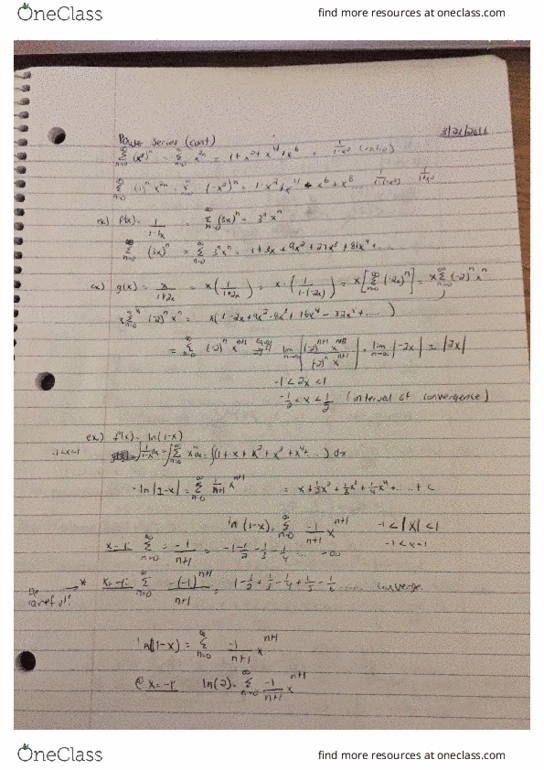 OneClass find more resources at oneclass.com
Power Series (cont)
∑ (x²)ⁿ = ∑ x²ⁿ = 1+x²+x⁴+x⁶ = 1/(1-x²) (ratio)
∑ (-1)ⁿ x²ⁿ = ∑ (-x²)ⁿ = 1-x²+x⁴-x⁶+x⁸ 1/(1-(-x²)) 1/(1+x²)
ex.) f(x) = 1/(1-3x) = ∑ (3x)ⁿ = 3ⁿxⁿ
∑ (3x)ⁿ = ∑ 3ⁿxⁿ = 1+3x+9x²+27x³+81x⁴+....
ex) g(x) = x/(1+2x) = x(1/(1+2x)) = x·(1/(1-(-2x))) = x[∑ (-2x)ⁿ] = x∑ (-2)ⁿxⁿ
x∑ (-2)ⁿxⁿ = x(1-2x+4x²-8x³+16x⁴-32x⁵+....)
= ∑ (-2)ⁿ xⁿ⁺¹ lim | (-2)ⁿ⁺¹ xⁿ⁺² / (-2)ⁿ xⁿ⁺¹ | = lim |-2x| = |2x|
-1<2x<1
-1/2<x<1/2 (interval of convergence)
ex.) f(x) = ln(1-x)
-1<x<1 ∫ 1/(1-x) dx = ∫∑ xⁿ dx = ∫(1+x+x²+x³+x⁴+...) dx
-ln|1-x| = ∑ 1/(n+1) xⁿ⁺¹ = x+1/2x²+1/3x³+1/4x⁴+...+c
ln(1-x) = ∑ -1/(n+1) xⁿ⁺¹ -1<|x|<1
-1<x<1
x=1: ∑ = -1/(n+1) = -1-1/2-1/3-1/4 ... -∞
* x=-1: ∑ -(-1)ⁿ⁺¹/(n+1) = 1-1/2+1/3-1/4+1/5-1/6 .... converge.
ln(1-x) = ∑ -1/(n+1) xⁿ⁺¹
@ x=-1 ln(2) = ∑ -1/(n+1) xⁿ⁺¹
OneClass find more resources at oneclass.com